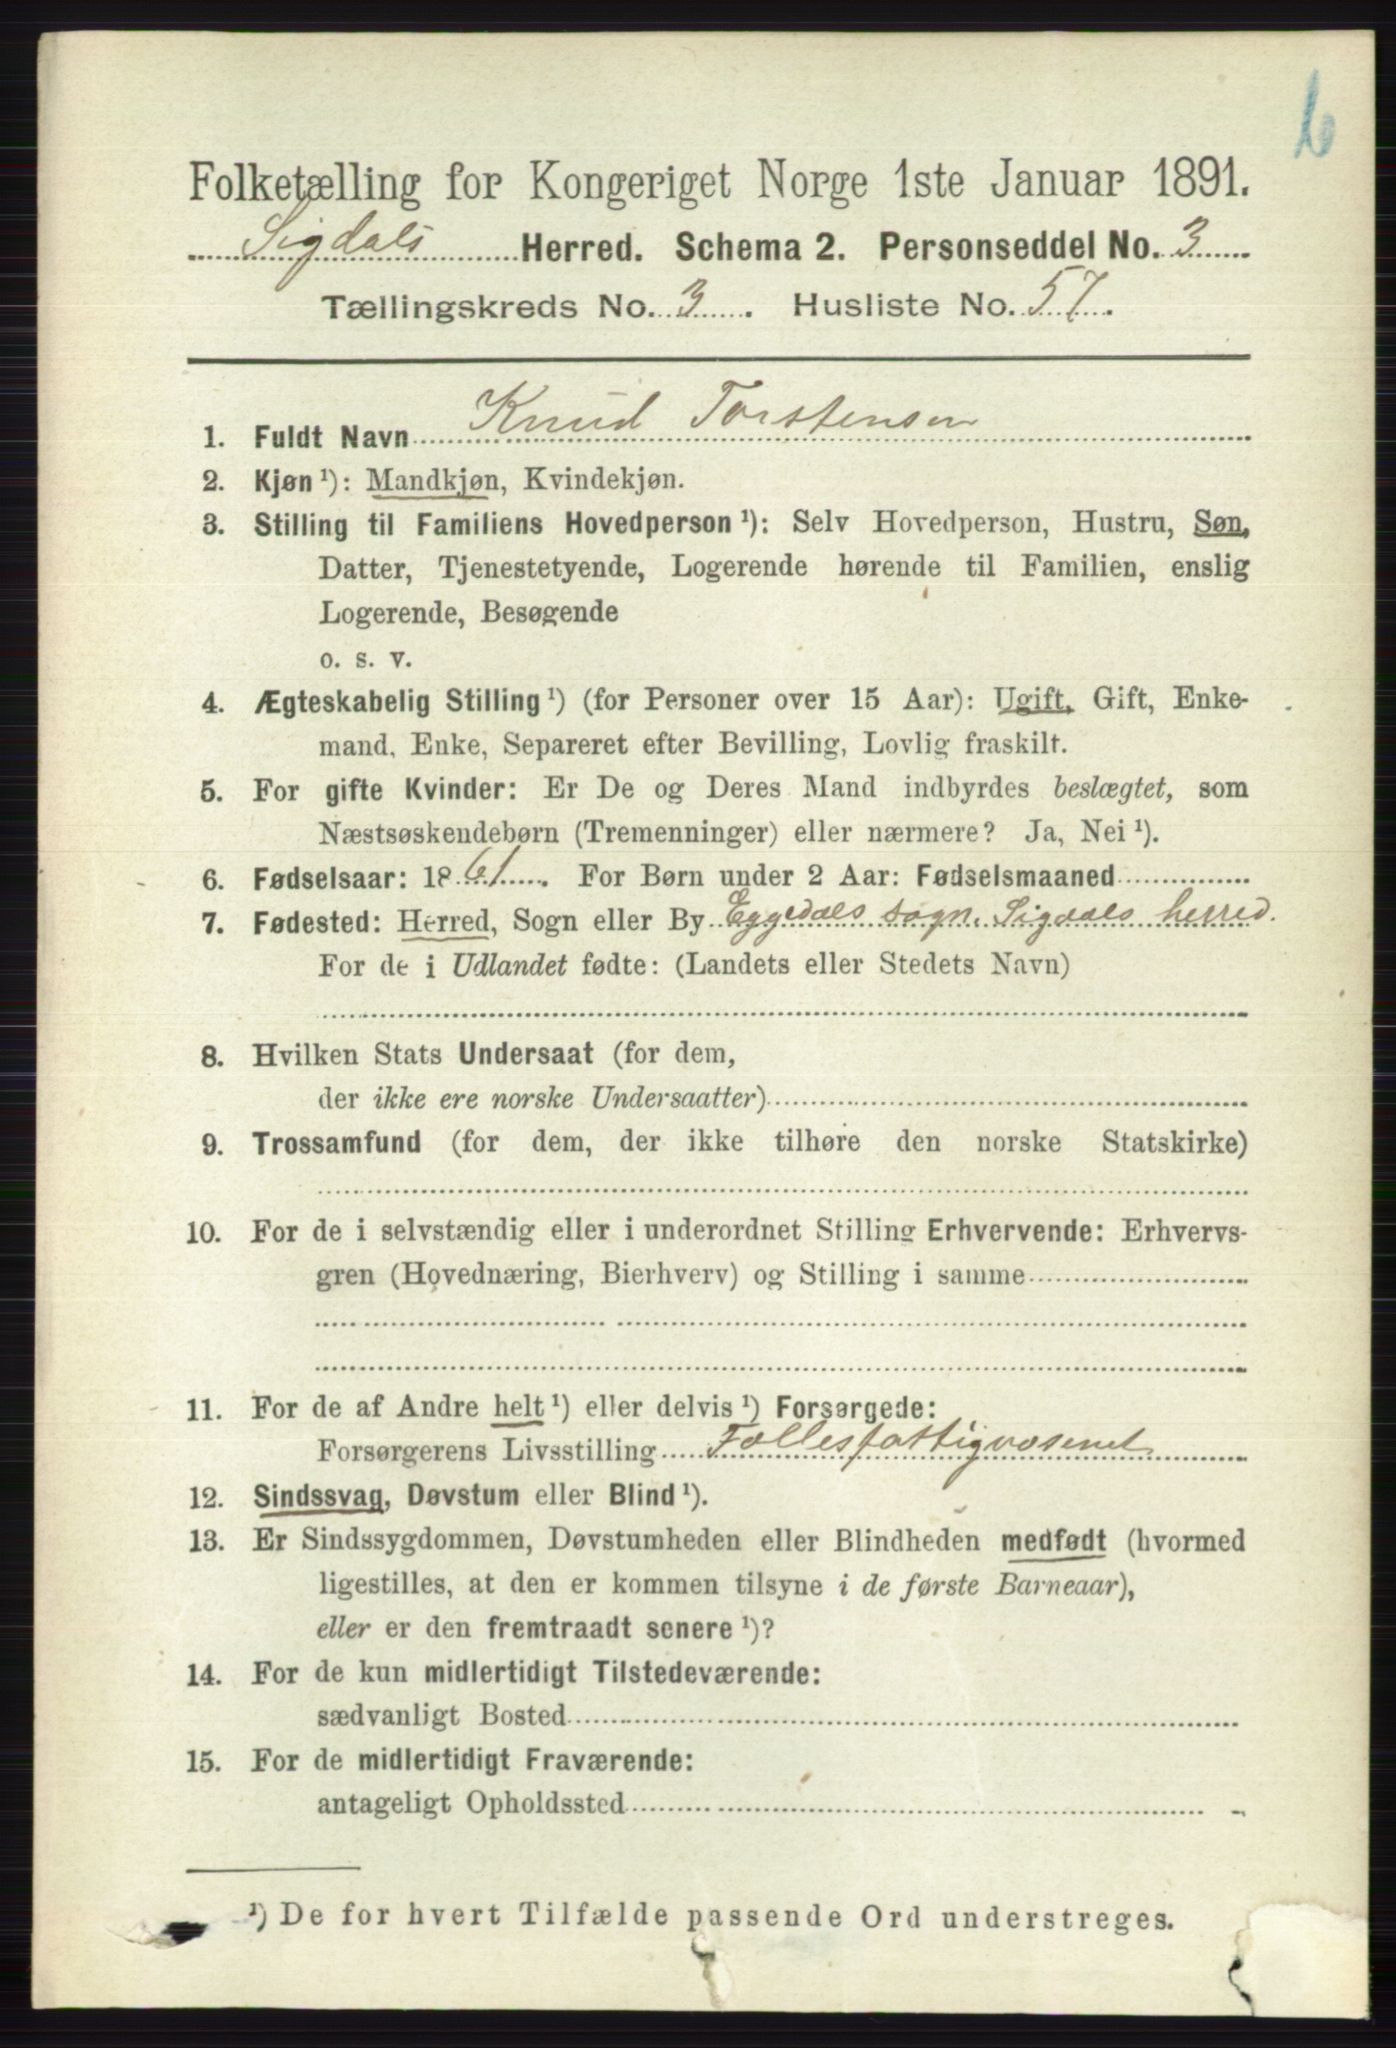 6
Folketælling for Kongeriget Norge 1ste Januar 1891.
Sigdals Herred. Schema 2. Personseddel No. 3
Tællingskreds No. 3. Husliste No. 57.
1. Fuldt Navn Knud Torstensen
2. Kjøn ¹): Mandkjøn, Kvindekjøn.
3. Stilling til Familiens Hovedperson ¹): Selv Hovedperson, Hustru, Søn,
Datter, Tjenestetyende, Logerende hørende til Familien, enslig
Logerende, Besøgende
o. s. v.
4. Ægteskabelig Stilling ¹) (for Personer over 15 Aar): Ugift, Gift, Enke-
mand, Enke, Separeret efter Bevilling, Lovlig fraskilt.
5. For gifte Kvinder: Er De og Deres Mand indbyrdes beslægtet, som
Næstsøskendebørn (Tremenninger) eller nærmere? Ja, Nei ¹).
6. Fødselsaar: 1861. For Børn under 2 Aar: Fødselsmaaned
7. Fødested: Herred, Sogn eller By Eggedals sogn. Sigdals herred.
For de i Udlandet fødte: (Landets eller Stedets Navn)
8. Hvilken Stats Undersaat (for dem,
der ikke ere norske Undersaatter)
9. Trossamfund (for dem, der ikke tilhøre den norske Statskirke)
10. For de i selvstændig eller i underordnet Stilling Erhvervende: Erhvervs-
gren (Hovednæring, Bierhverv) og Stilling i samme
11. For de af Andre helt ¹) eller delvis ¹) Forsørgede:
Forsørgerens Livsstilling Follesfattigvæsenet
12. Sindssvag, Døvstum eller Blind ¹).
13. Er Sindssygdommen, Døvstumheden eller Blindheden medfødt (hvormed
ligestilles, at den er kommen tilsyne i de første Barneaar),
eller er den fremtraadt senere ¹)?
14. For de kun midlertidigt Tilstedeværende:
sædvanligt Bosted
15. For de midlertidigt Fraværende:
antageligt Opholdssted
¹) De for hvert Tilfælde passende Ord understreges.